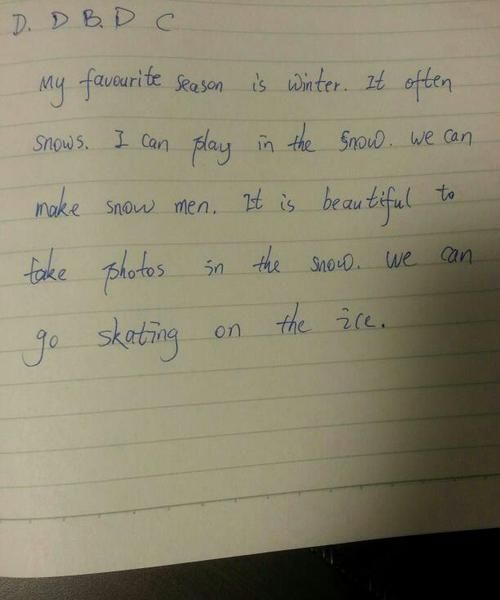 D. D B. D C
My favourite season is winter. It often
snows. I can play in the snow. we can
make snow men. It is beautiful to
take photos in the snow. we can
go skating on the ice.